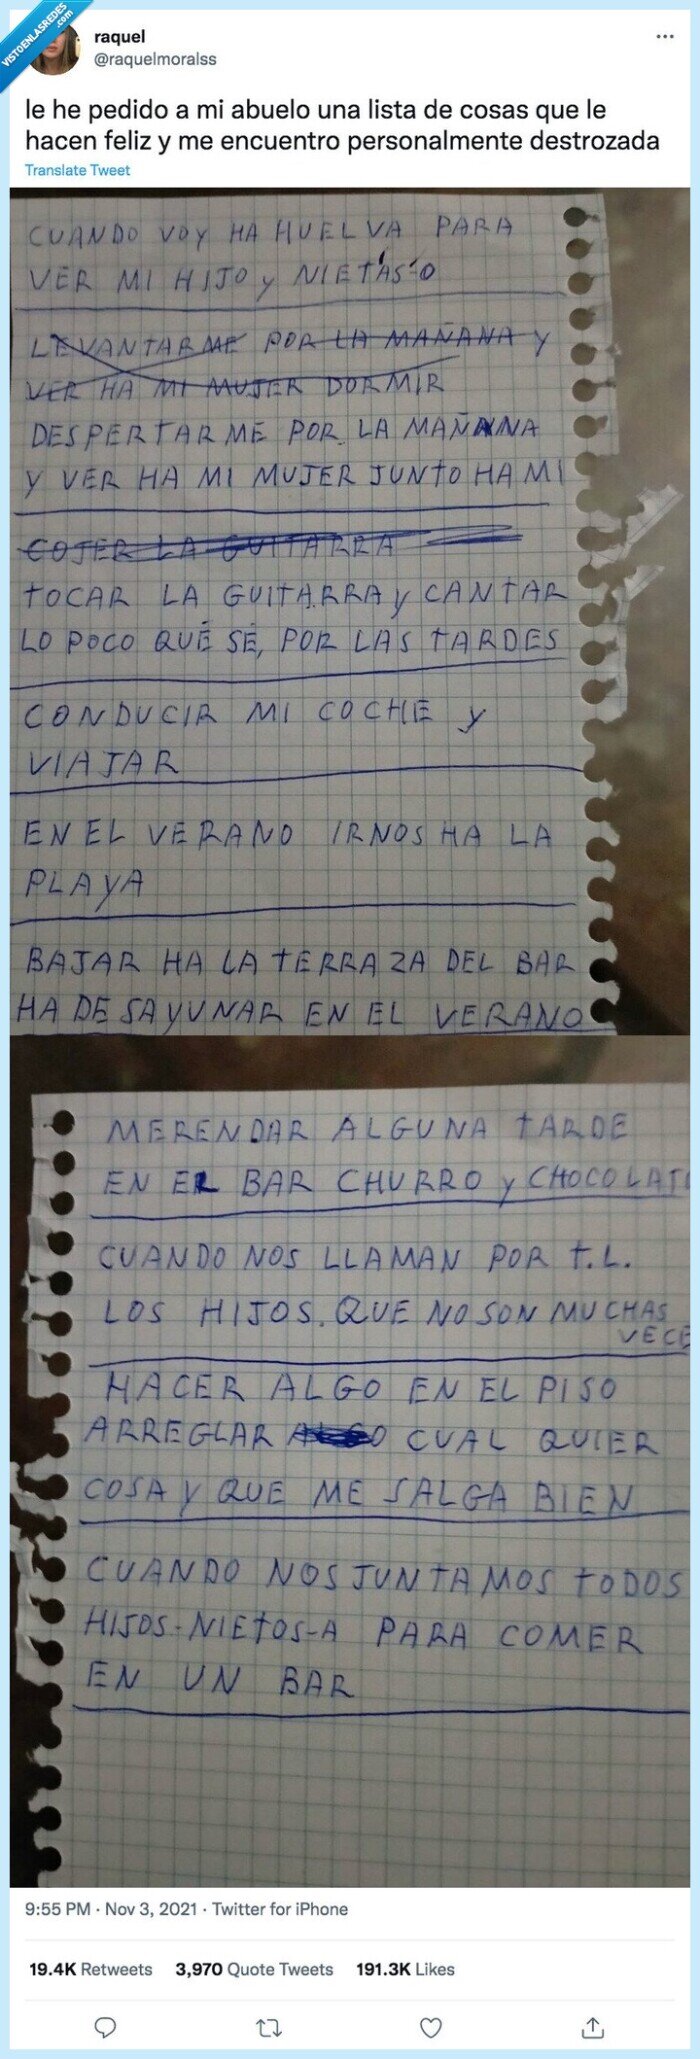 VISTOENLASREDES
.com
raquel
@raquelmoralss
le he pedido a mi abuelo una lista de cosas que le
hacen feliz y me encuentro personalmente destrozada
Translate Tweet
CUANDO VOY HA HUELVA PARA
VER MI HIJO y NIETAS-O
LEVANTARME POR LA MAÑANA y
VER HA MI MUJER DORMIR
DESPERTARME POR LA MAÑANA
Y VER HA MI MUJER JUNTO HA MI
COJER LA GUITARRA
TOCAR LA GUITARRA y CANTAR
LO POCO QUÉ SÉ, POR LAS TARDES
CONDUCIR MI COCHE y
VIAJAR
EN EL VERANO IRNOS HA LA
PLAYA
BAJAR HA LA TERRAZA DEL BAR
HA DESAYUNAR EN EL VERANO
MERENDAR ALGUNA TARDE
EN EL BAR CHURRO y CHOCOLAT
CUANDO NOS LLAMAN POR T.L.
LOS HIJOS. QUE NO SON MUCHAS
VECE
HACER ALGO EN EL PISO
ARREGLAR ALGO CUAL QUIER
COSA Y QUE ME SALGA BIEN
CUANDO NOS JUNTAMOS TODOS
HIJOS-NIETOS-A PARA COMER
EN UN BAR
9:55 PM · Nov 3, 2021 · Twitter for iPhone
19.4K Retweets 3,970 Quote Tweets 191.3K Likes